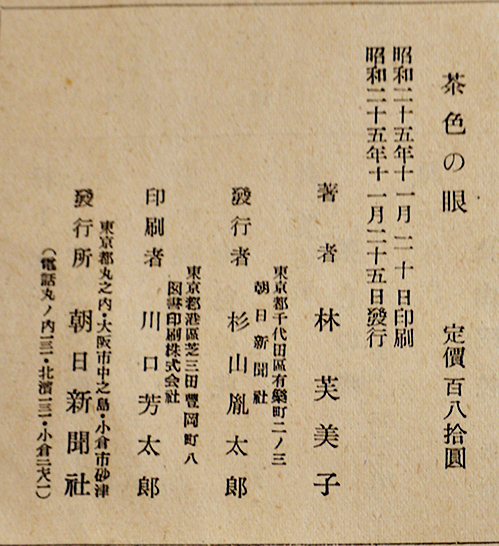 茶色の眼 定價 百八拾圓
昭和二十五年十一月二十日印刷
昭和二十五年十一月二十五日發行
著者 林芙美子
東京都千代田區有樂町二ノ三
朝日新聞社
發行者 杉山胤太郎
東京都港區芝三田豐岡町八
図書印刷株式会社
印刷者 川口芳太郎
東京都丸之内・大阪市中之島・小倉市砂津
發行所 朝日新聞社
(電話丸ノ内一三一・北濱一三一・小倉二六一)